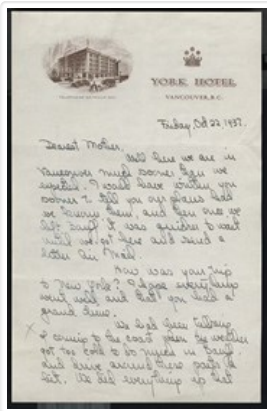 YORK HOTEL
VANCOUVER, B.C.
Friday, Oct 22, 1937.
Dearest Mother,
Well here we are in
Vancouver much sooner than we
expected. I would have written you
sooner to tell you our plans had
we known them, and then once we
left Banff it was quicker to wait
until we got here and send a
letter Air Mail.
How was your trip
to New York? I hope everything
went well and that you had a
grand time.
We had been talking
of coming to the coast when the weather
got too cold to do much in Banff
and drive around these parts a
bit. We did everything up that